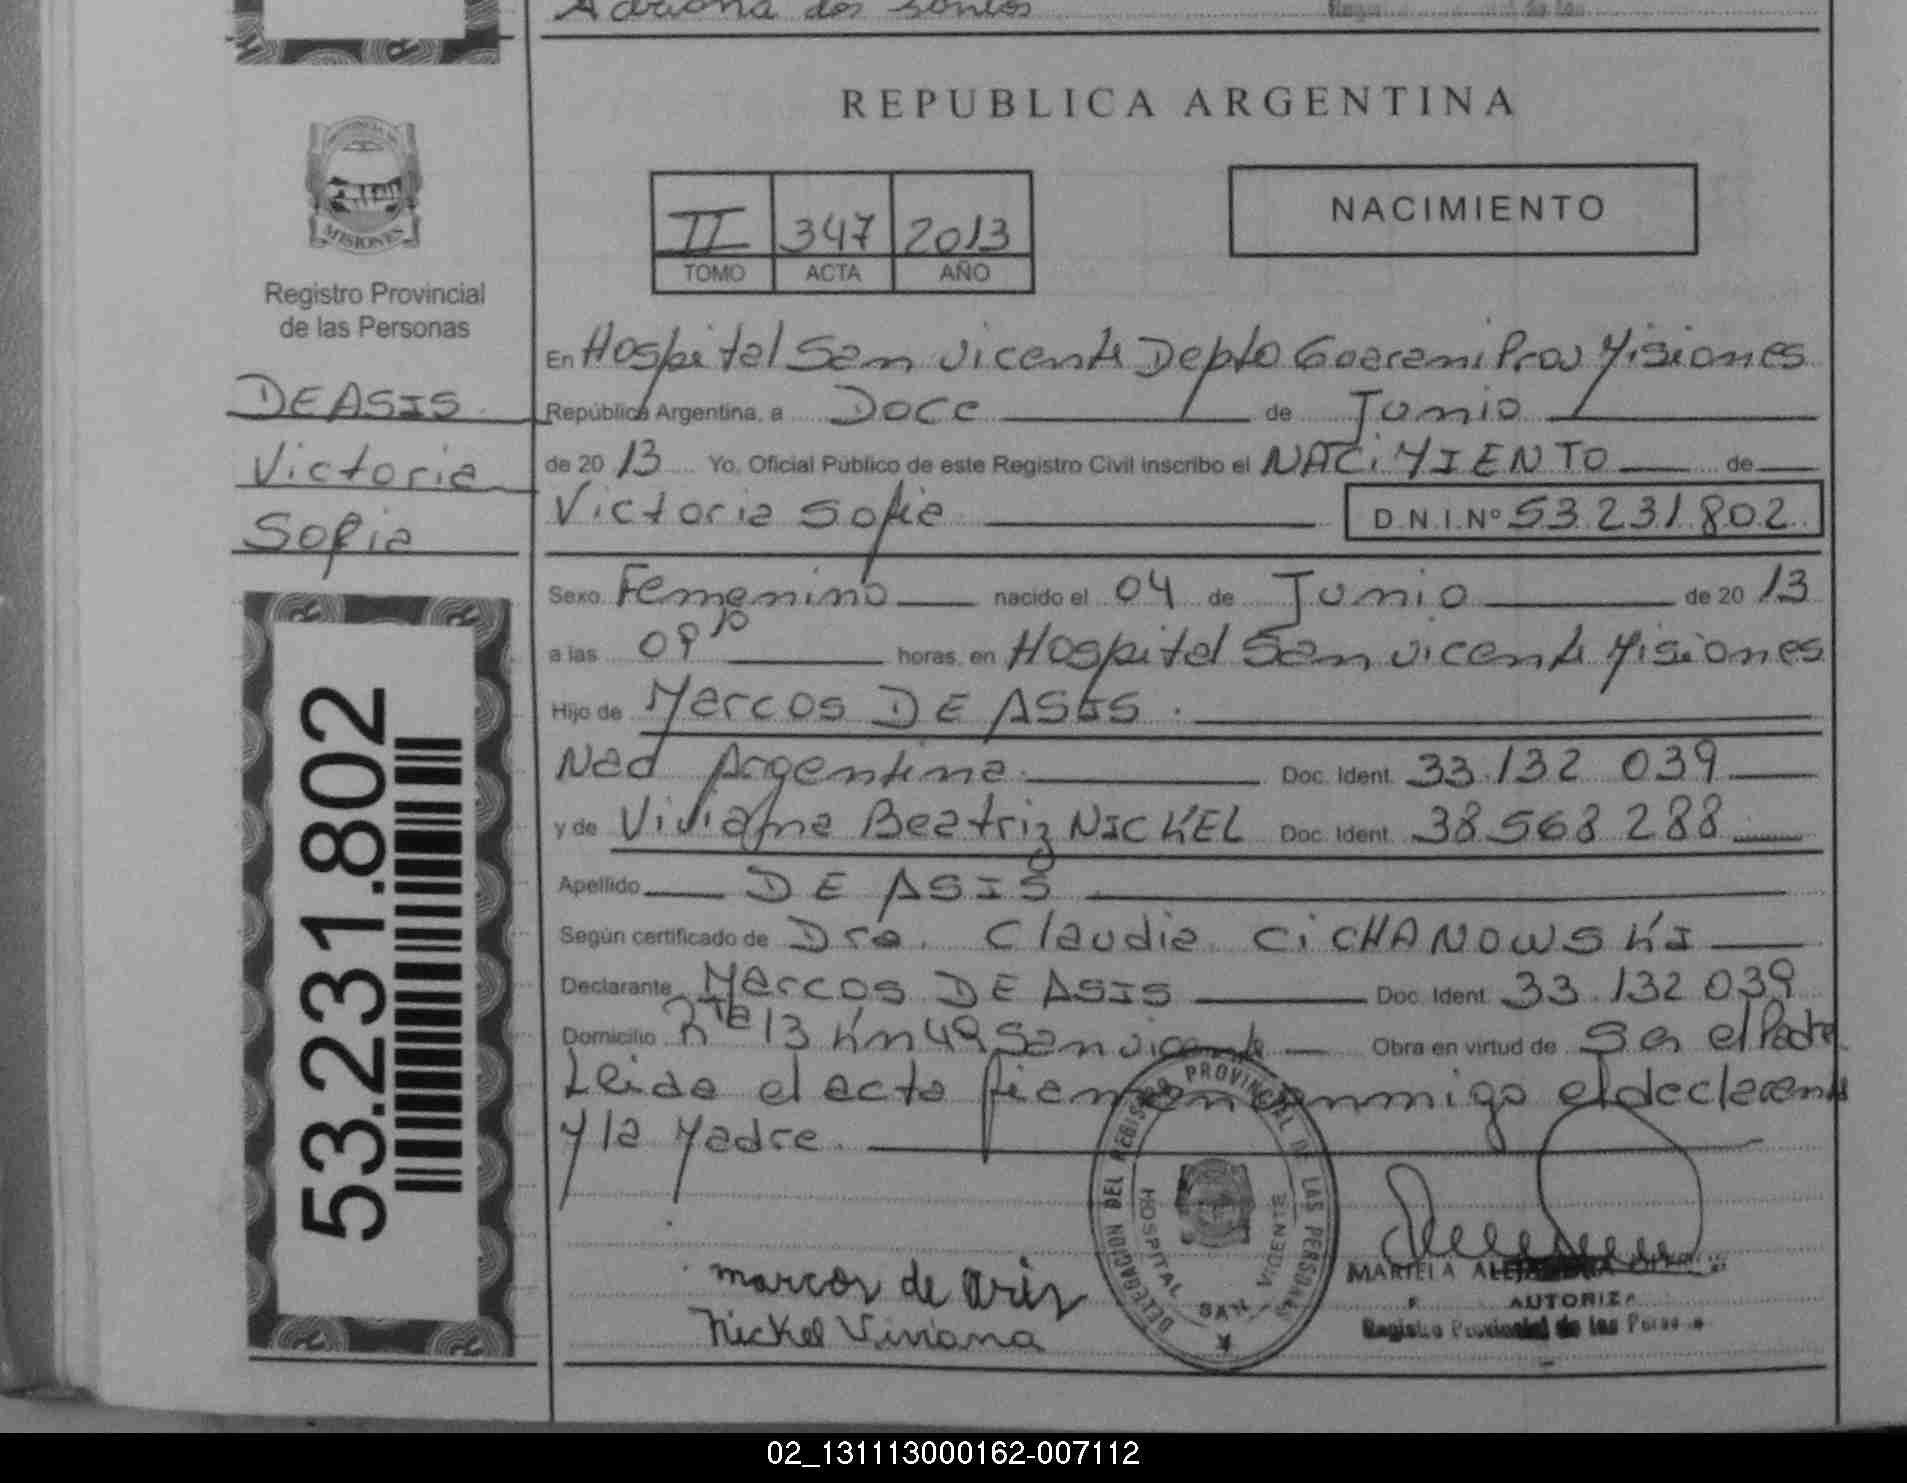 Adriana dos santos
REPUBLICA ARGENTINA
MISIONES
Registro Provincial
de las Personas
II 347 2013
TOMO ACTA AÑO
NACIMIENTO
DE ASIS
Victoria
Sofia
En Hospital San Vicente Depto Guarani Prov Misiones
República Argentina, a Doce de Junio
de 20 13 Yo, Oficial Público de este Registro Civil inscribo el NACiMIENTO de
Victoria Sofia D.N.I.Nº 53.231.802
Sexo Femenino nacido el 04 de Junio de 20 13
a las horas, en Hospital San Vicente Misiones
Hijo de Marcos DE ASIS.
Nad Argentina Doc. Ident. 33.132.039
y de Viviana Beatriz NICKEL Doc. Ident. 38.568.288
Apellido DE ASIS
Según certificado de Dra. Claudia CiCHANOWSKI
Declarante Marcos DE ASIS Doc. Ident. 33.132.039
Domicilio Rta 13 Km 49 San Vicente Obra en virtud de Ser el Padre
Leida el acta firman conmigo el declarante
y la Madre
53.231.802
DELEGACION DEL REGISTRO PROVINCIAL DE LAS PERSONAS
HOSPITAL SAN VICENTE
marcos de asis
Nickel Viviana
MARIELA
AUTORIZ
Registro Provincial de las Personas
02_131113000162-007112